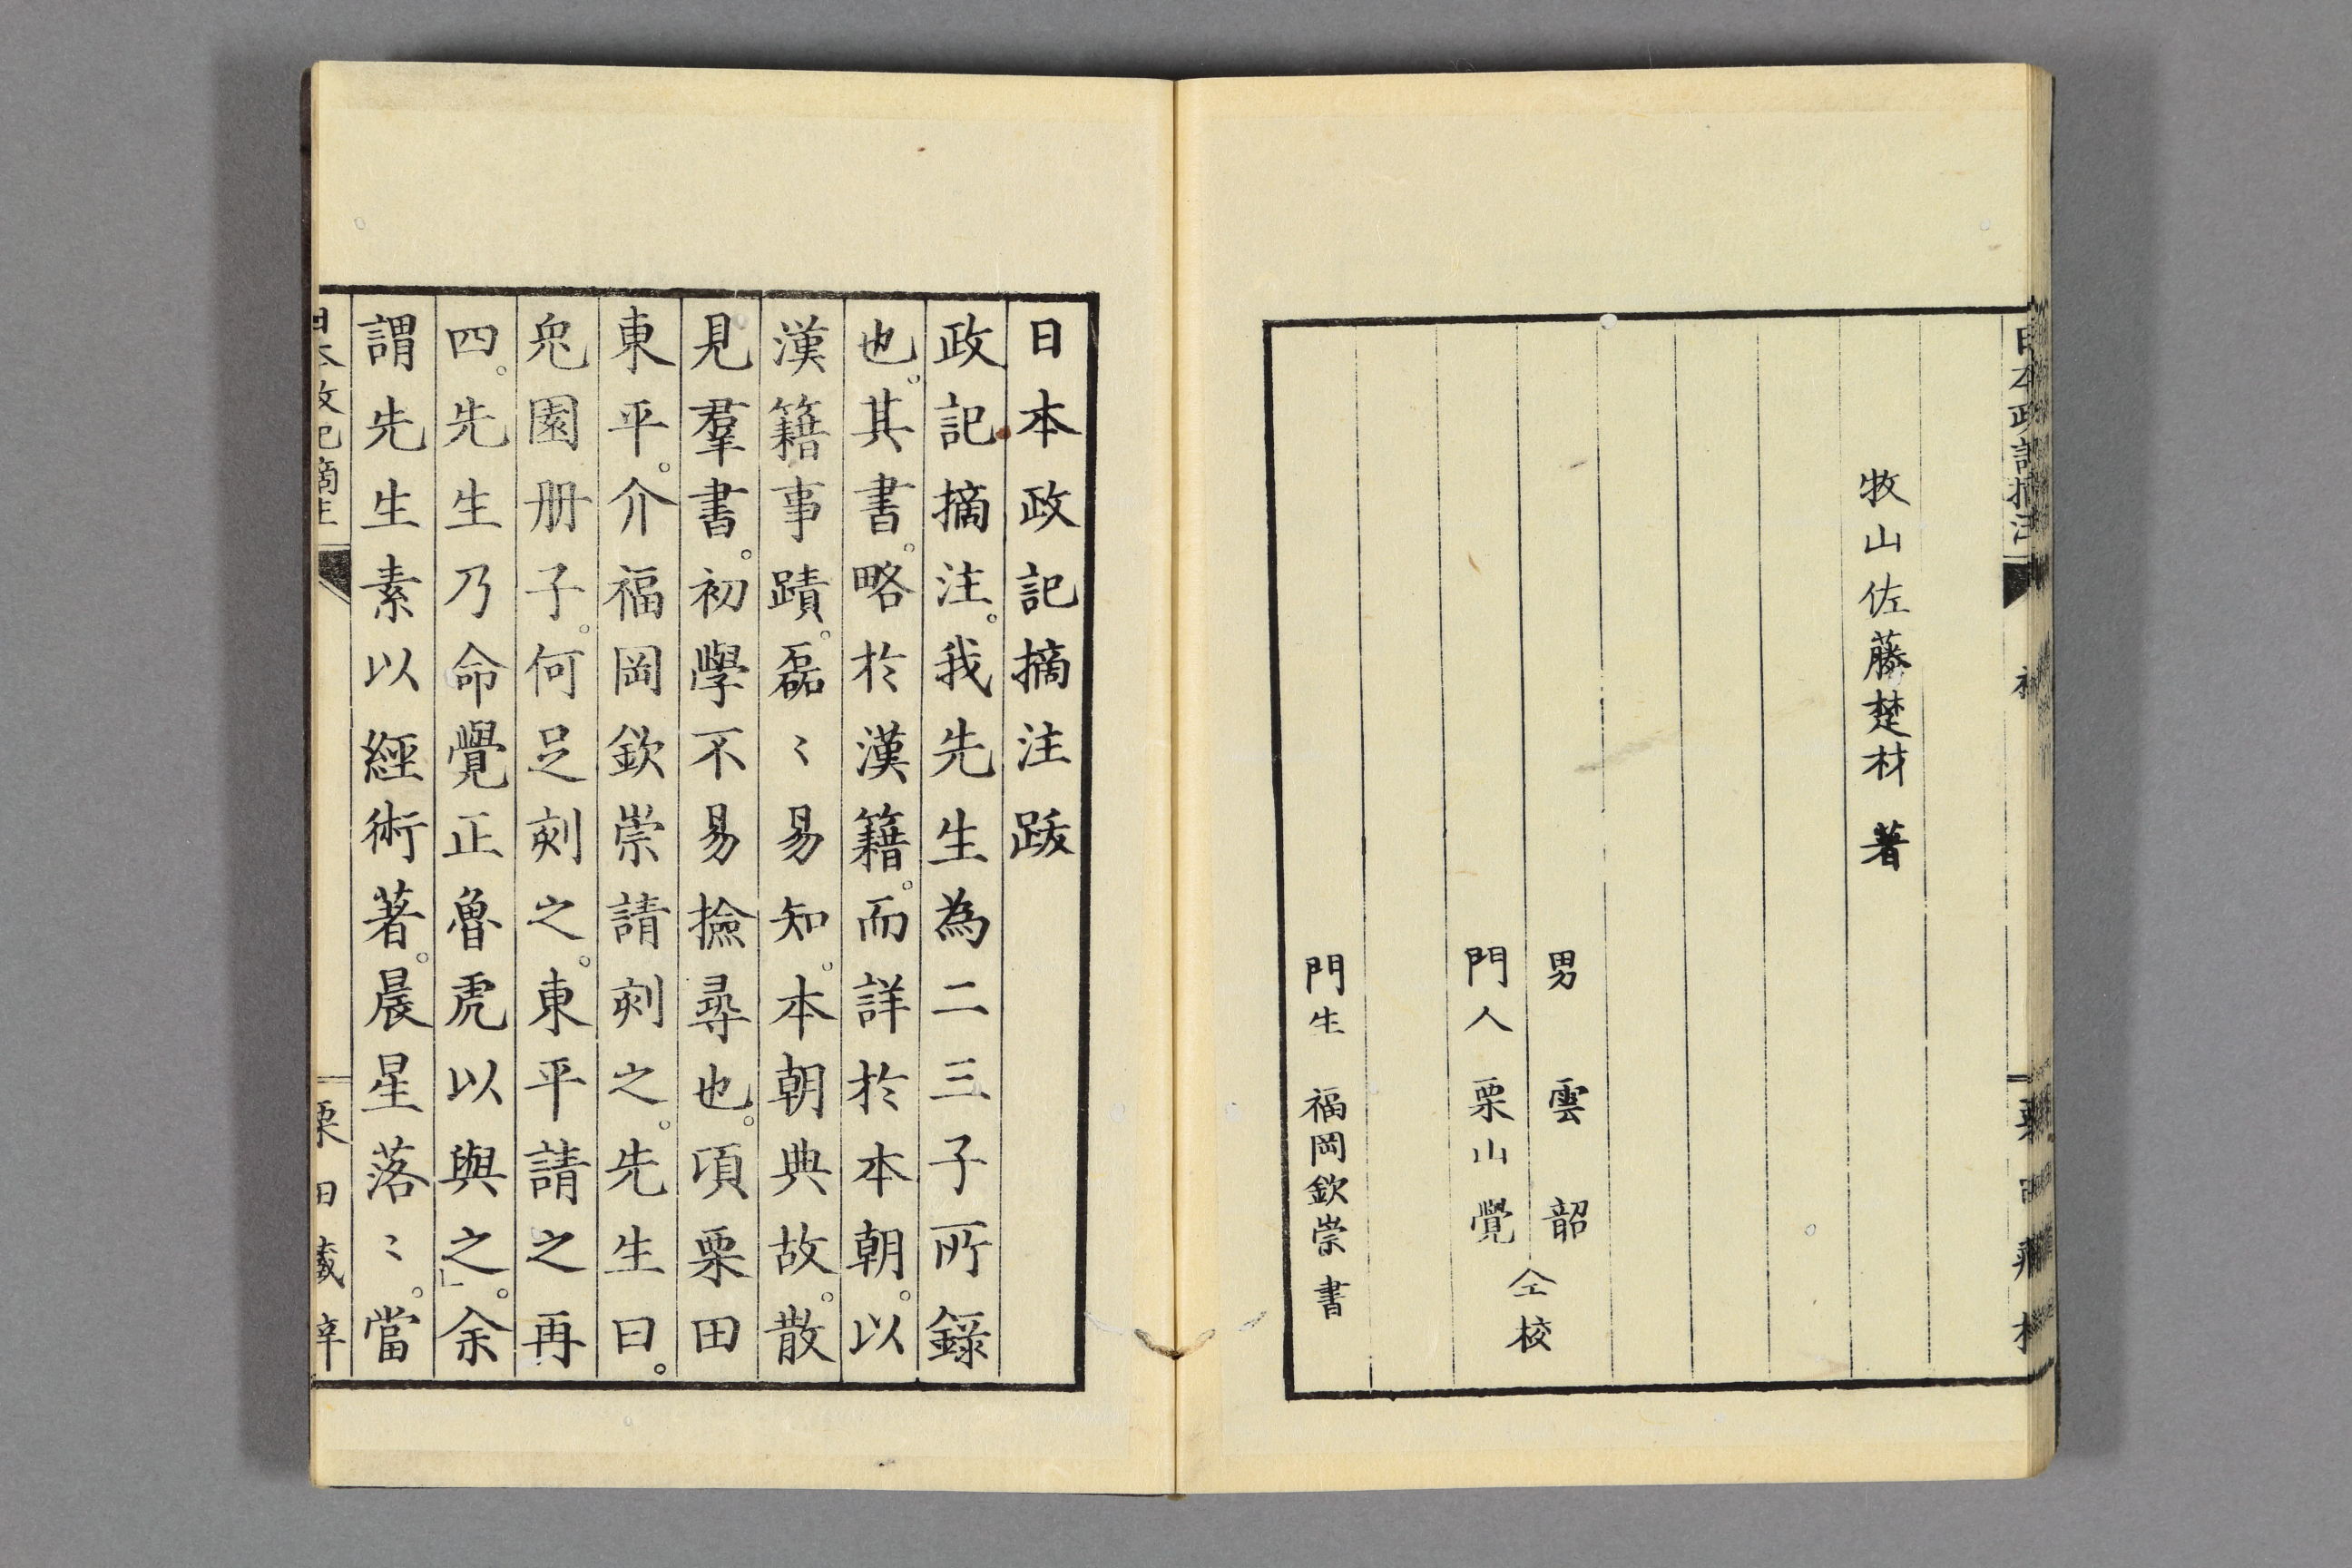 日本政記摘注
牧山佐藤楚材 著
男 雲 韶
門人 栗山 覺
仝校
門生 福岡欽崇書
日本政記摘注跋
政記摘注。我先生為二三子所錄
也。其書。略於漢籍。而詳於本朝。以
漢籍事蹟。磊〻易知。本朝典故。散
見羣書。初學不易撿尋也。頃栗田
東平。介福岡欽崇請刻之。先生曰。
兔園册子。何足刻之。東平請之再
四。先生乃命覺正魯虎以與之」。余
謂先生素以經術著。晨星落〻。當
日本政記摘注
栗田藏梓